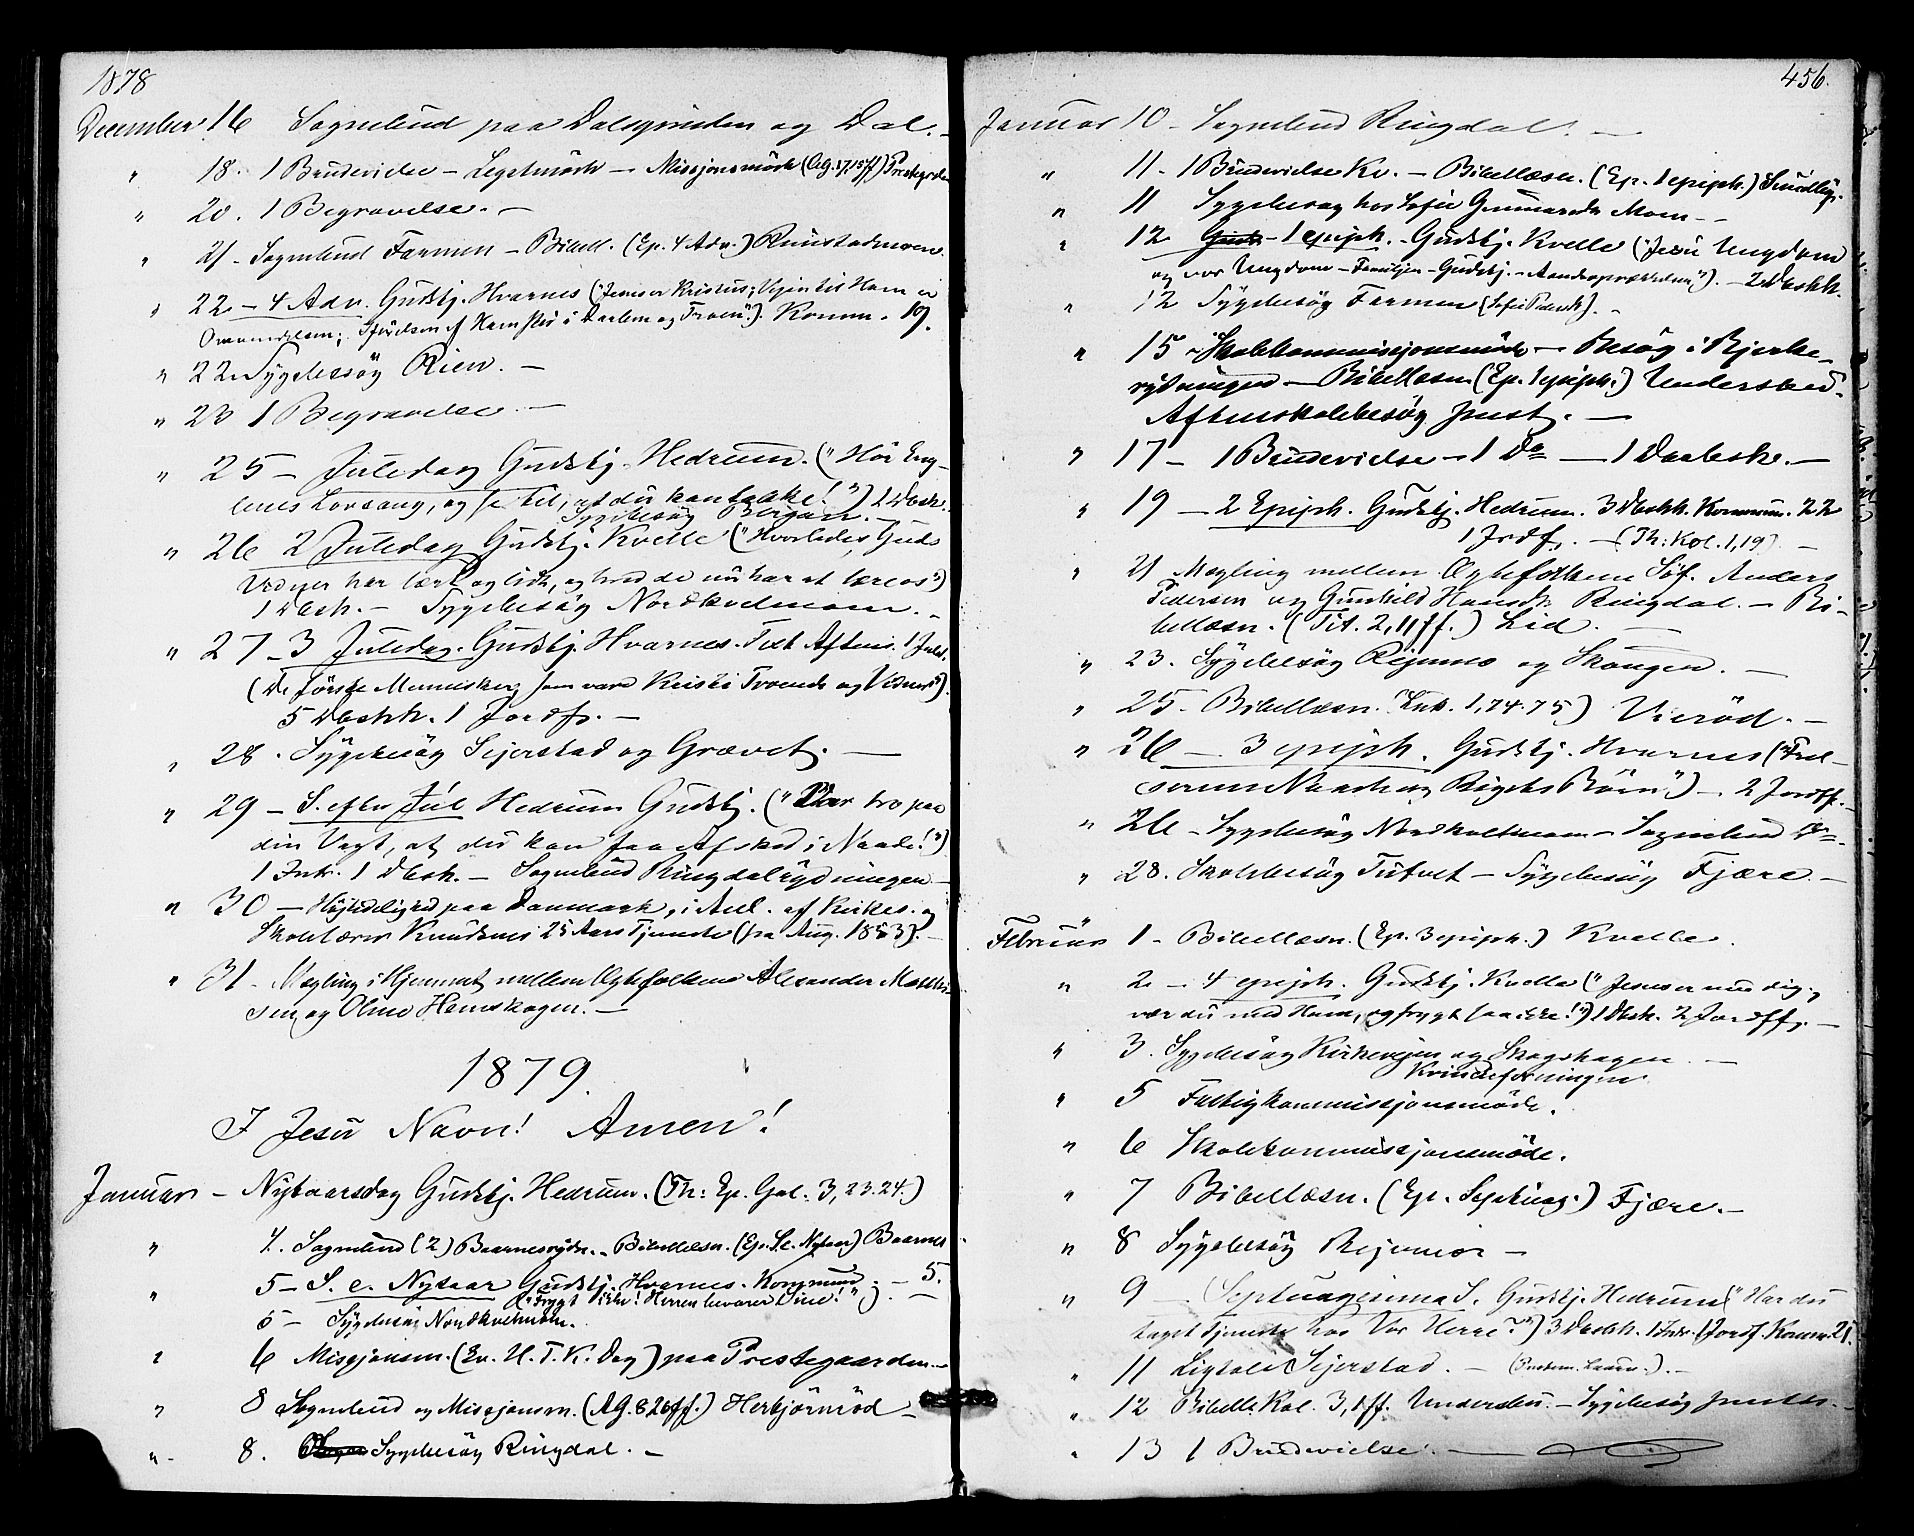 1878
December 16 Sognebud paa Dalsgrinden og Dal. -
" 18. 1 Brudevielse - Legatmöde - Missjonsmöde (AG. 17,15ff) Prestegrden
" 20. 1 Begravelse. -
" 21 - Sognebud Farmen - Bibell. (Ep. 4 Adv.) Rimstadmoen.
" 22 - 4 Adv. Gudstj. Hvarnes ("Jesus er Kristus; Vejen til Ham er
Omvendelsen; i Daaben og Troen".) Komm. 19.
" 22. Sygebesög Rien. -
" 23 1 Begravelse. -
" 25 - Juledag Gudstj. Hedrum. ("Hör Eng-
lenes Lovsang, og se til, at du kan takke!") 2 Dbesk.
Sygebesög Bergan. -
" 26 2 Juledag Gudstj. Kvelle ("Hvorledes Guds
Vidner har lært og lidt, og hvad de nu har at lære os")
1 Dbesk. - Sygebesög Nordkvelmoen. -
" 27 - 3 Juledag. Gudstj. Hvarnes. Text Aftens. 1 Juled.
(De förste Mennesker som vare Kristi Troende og Vidner").
5 Dbeskk. 1 Jordf. -
" 28. Sygebesög Sejerstad og Grævet. -
" 29 - S. efter Jul Hedrum Gudstj. ("Vær tro paa
din Vagt, at du kan faa Afsked i Naade!")
1 Intr. 1 Dbesk. - Sognebud Ringdalrydningen -
" 30 - Höjtidelighed paa Danmark, i Anl. af Kirkes. og
Skolelærer Knudsens 25 Aars Tjeneste (fra Aug. 1853). -
" 31 - Mægling i Hjemmet mellem Ægtefolkene Alexander Mathi-
sen og Oline Hemskogen. -
1879.
I Jesu Navn! Amen!
Januar - Nytaarsdag Gudstj. Hedrum. (Th: Ep. Gal. 3, 23.24.)
" 4. Sognebud (2) Baarnesrydn. - Bibellæsn. (Ep. S. e. Nytaar) Baarnes
" 5 - S. e. Nytaar Gudstj. Hvarnes. Kommun. - 5.
("Frygt ikke! Herren bevarer Sine!"). -
5 - Sygebesög Nordkvelmoen.
" 6 Missjonsm. (Ev. H. T. K. Dag) paa Prestegaarden. -
" 8 Sognebud og Missjonsm. (AG. 8,26ff.) Herbjörnröd -
" 8. Sygebesög Ringdal. -
456.
Januar 10 - Sognebud Ringdal. -
" 11 - 1 Brudevielse Kv. - Bibellæsn. (Ep. 1 epiph.)
" 11 Sygebesög hos Sofie Gunnarsdr Moen - -
" 12 - 1 epiph. - Gudstj. Kvelle ("Jesu Ungdom
og vor Ungdom - Familjen - Gudstj. - Aandsopvækkelsen"). - 2 Dbeskk.
" 12 Sygebesög Farmen (Sofie Pedersdr). -
" 15 - Skolekommissjonsmöde - Besög i Bjerke-
rydningen - Bibellæsn. (Ep. 1 epiph.) Undersbed.
Aftenskolebesög smst. -
" 17 - 1 Brudevielse - 1 Do - 1 Daabesk. -
" 19 - 2 Epiph. Gudstj. Hedrum. 3 Dbeskk. Kommun. 22
1 Jordf. - (Th: Kol. 1,19) -
" 21 Mægling mellem Ægtefolkene Söf. Anders
Pedersen og Gunhild Hansdr Ringdal. - Bi-
bellæsn. (Tit. 2,11ff.) Lid. -
" 23. Sygebesög Rejmes og Skougen. -
" 25 - Bibellæsn. (Luk. 1,74.75) Vieröd. -
" 26 - 3 epiph. Gudstj. Hvarnes ("Frel-
serens Naade og Rigets Börn") - 2 Jordff. -
" 26 - Sygebesög Nordkvelmoen - Sognebud Do -.
" 28. Skolebesög Tufvet - Sygebesög Fjære. -
Februar 1 - Bibellæsn. (Ep. 3 epiph.) Kvelle.
" 2 - 4 epiph. Gudstj. Kvelle ("Jesus er med dig;
vær du med Ham, og frygt saa ikke!") 1 Dbesk. 2 Jordff. -
" 3. Sygebesög Kirkevejen og Skogshagen. -
Kvindeforeningen
" 5 Fattigkommissjonsmöde.
" 6 Skolekommissjonsmöde.
" 7 Bibellæsn. (Ep. Septuag.) Fjære. -
" 8 Sygebesög Rejmer -
" 9 - Septuagesima S. Gudstj. Hedrum ("Har du
taget Tjeneste hos Vor Herre?") 3 Dbeskk. 1 Intr. 1 Jordf. Komm. 21.
" 11 Ligtale Sejerstad. - -
" 12 Bibell. Kol. 3,1ff. Undersbu. - Sygebesög smsts. -
" 13 1 Brudevielse. -